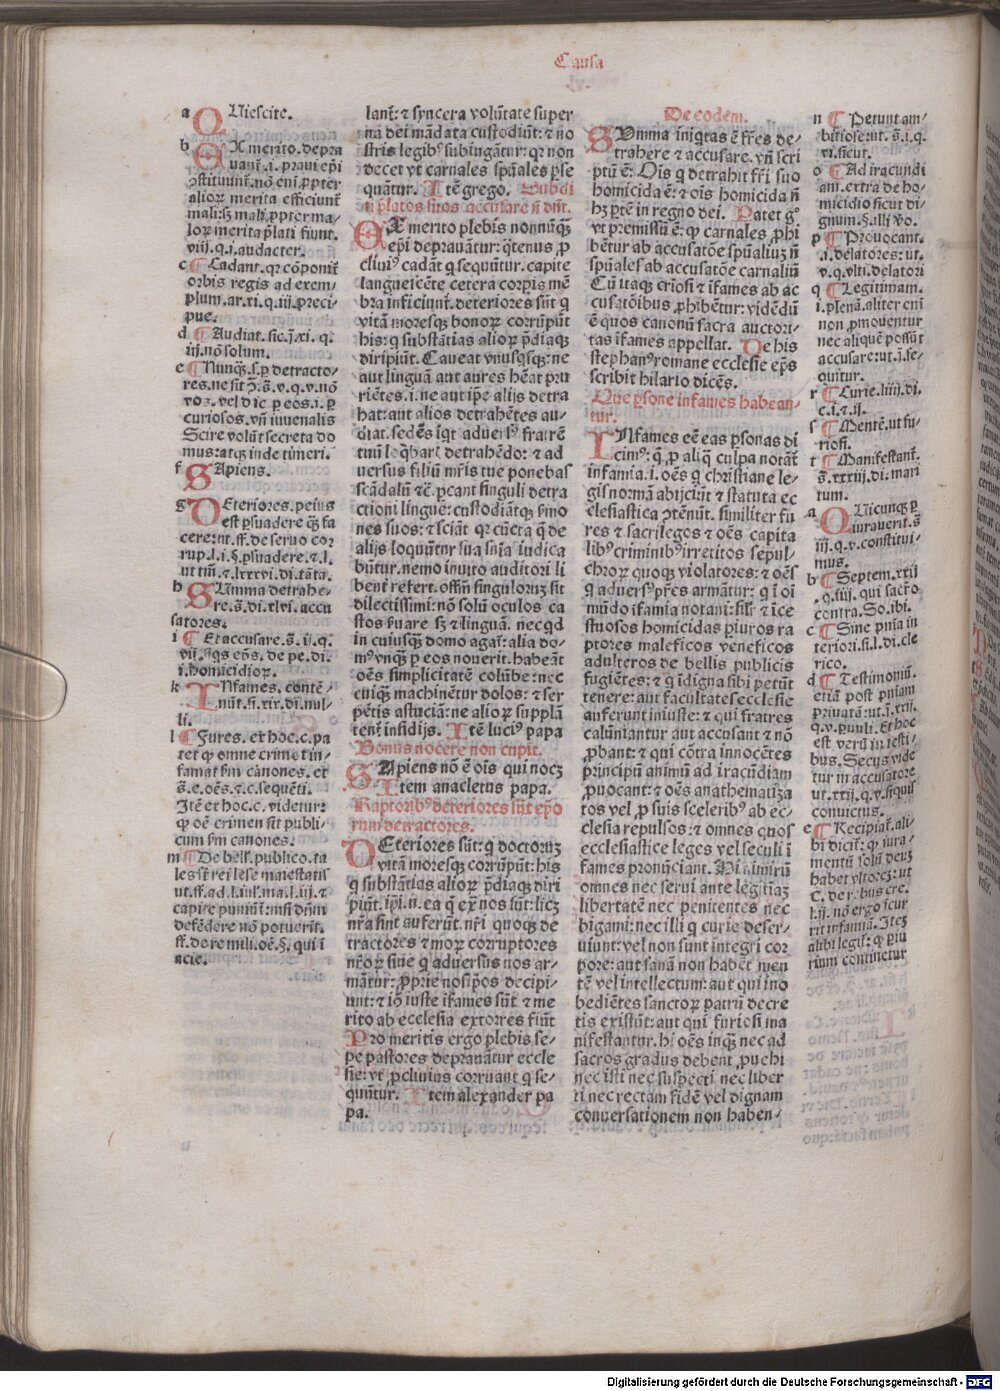 Causa
a QUiescite.
b EX merito. depra
uant̄. i. praui ep̄i
ꝯstituunt̄. nō eni ꝓpter
alioꝝ merita efficiunt̄
mali: sꝫ mali ꝓpter ma⸗
loꝝ merita p̄lati fiunt.
viij. q. i. audacter.
c Cadant. qꝛ cōponit̄
orbis regis ad exem⸗
plum. ar. xi. q. iij. preci⸗
pue.
d Audiat. sic. j. xi. q.
iij. nō solum.
e Nunqͥ. s. ꝑ detracto⸗
curiosos. vn̄ iuuenalis
Scire volūt secreta do
mus: atqꝫ inde timeri.
f SApiens.
g DEteriores. peius
est ꝑsuadere qͣꝫ fa
cere: ut. ff. de seruo cor
rup. l. i. §. ꝑsuadere. ⁊. l.
ut tm̄. ⁊. lxxxvi. di. tāta.
h SUmma detrahe⸗
re. s̄. di. xlvi. accu
satores.
i Et accusare. s̄. ii. q.
i. homicidioꝝ.
k INfames. contē⸗
nūt. sī. xix. di. nul⸗
li.
l Fures. et hoc. c. pa
tet ꝙ omne crimē in⸗
famat ẜm canones. et
s̄. e. oēs. ⁊. c. sequēti.
Itē et hoc. c. videtur:
ꝙ oē crimen sit publi⸗
cum ẜm canones.
m De bell. publico. ta
les sūt rei lese maiestatis
ut. ff. ad. l. iul. ma. l. iij. ⁊
capite puniūt: nisi dn̄m
defēdere nō potuerit.
ff. de re mili. oē. §. qui i
acie.
lant: ⁊ syncera volūtate super
na dei mādata custodiūt: ⁊ no
stris legibꝰ subiugātur: qꝛ non
decet vt carnales spūales ꝑse
quātur. Itē grego. Subdi
ti p̄latos suos accusare n̄ dn̄t.
EX merito plebis nonnūqͣꝫ
ep̄i deprauātur: qͣtenus ꝓ
cliuiꝰ cadāt q̇ sequūtur. capite
languescēte cetera corꝑis mē
bra inficiunt̄. deteriores sūt q̇
vitā moresqꝫ bonoꝝ corrūpūt
his: q̇ substātias alioꝝ p̄diaqꝫ
diripiūt. Caueat vnusqͥsqꝫ: ne
aut linguā aut aures hēat pru
riētes. i. ne aut ip̄e alijs detra
hat: aut alios detrahētes au⸗
diat. sedēs īqͥt aduersꝰ fratrē
tuū loq̄baris detrahēdo: ⁊ ad
uersus filiū mr̄is tue ponebas
scādalū ⁊c̄. ꝑcant singuli detra
ctioni lingue: custodiātqꝫ ẜmo
nes suos: ⁊ sciāt qꝛ cūcta q̄ de
alijs loquūtur sua sn̄ia iudica
būtur. nemo inuito auditori li
bent̄ refert. offm̄ singuloꝝ sit
dilectissimi: nō solū oculos ca
stos ẜuare sꝫ ⁊ linguā. nec qͥd
in cuiusqͣꝫ domo agat̄: alia do⸗
mꝰ vnqͣꝫ ꝑ eos nouerit. habeāt
oēs simplicitatē colūbe: nec
cuiqͣꝫ machinētur dolos: ⁊ ser
pētis astuciā: ne alioꝝ supplā
tent̄ insidijs. Itē luciꝰ papa
Bonus nocere non cupit.
SApiens nō ē ois qui nocꝫ
Item anacletus papa.
Raptoribꝰ deteriores sūt ep̄o
rum detractores.
DEteriores sūt: q̇ doctoꝝ
vitā moresqꝫ corrūpūt: his
q̇ substātias alioꝝ p̄diaqꝫ diri
piūt. ip̄i. n̄. ea q̄ extͣ nos sūt: licꝫ
nr̄a sint auferūt. nr̄i quoqꝫ de
tractores ⁊ moꝝ corruptores
nr̄oꝝ siue q̇ aduersus nos ar⸗
mātur: ꝓprie nosip̄os decipi⸗
unt: ⁊ iō iuste īfames sūt ⁊ me
rito ab ecclesia extorres fiūt
Pro meritis ergo plebis se⸗
pe pastores deprauātur eccle
sie: vt ꝓcliuius corruant q̇ se⸗
quūtur. Item alexander pa
pa.
De eodem.
SUmma iniqͥtas ē fr̄es de⸗
trahere ⁊ accusare. vn̄ scri
ptū ē: Ois q̇ detrahit fr̄i suo
homicida ē: ⁊ ois homicida n̄
hꝫ ꝑtē in regno dei. Patet gͦ
vt premissū ē: ꝙ carnales ꝓhi
bētur ab accusatōe spūaliuꝫ n̄
spūales ab accusatōe carnaliū
Cū itaqꝫ criōsi ⁊ īfames ab ac
cusatōibus ꝓhibētur: vidēdū
ē quos canonū sacra auctori⸗
tas īfames appellat. De his
stephanꝰ romane ecclesie ep̄s
scribit hilario dicēs.
Que ꝑsone infames habean⸗
tur.
INfames eē eas ꝑsonas di
cimꝰ: q̄ ꝓ aliq̄ culpa notāt̄
infamia. i. oēs q̇ christiane le⸗
gis normā abijciūt ⁊ statuta ec
clesiastica ꝯtēnūt. similiter fu
res ⁊ sacrilegos ⁊ oēs capita
libꝰ criminibꝰ irretitos sepul⸗
chroꝝ quoqꝫ violatores: ⁊ oēs
q̇ aduersꝰ pr̄es armātur: q̇ ī oī
mūdo īfamia notant̄: sil̄r ⁊ īce
stuosos homicidas ꝑiuros ra
ptores maleficos veneficos
adulteros de bellis publicis
fugiētes: ⁊ q̇ īdigna sibi petūt
tenere: aut facultates ecclesie
auferunt iniuste: ⁊ qui fratres
calūniantur aut accusant ⁊ nō
ꝓbant: ⁊ qui cōtra innocētes
principū animū ad iracūdiam
ꝓuocant: ⁊ oēs anathematiza
tos vel ꝓ suis sceleribꝰ ab ec⸗
clesia repulsos: ⁊ omnes quos
ecclesiastice leges vel seculi ī
fames pronūciant. Hi nimirū
omnes nec serui ante legitimā
libertatē nec penitentes nec
bigami: nec illi q̇ curie deser⸗
uiunt: vel non sunt integri cor
pore: aut sanā non habēt men
tē vel intellectum: aut qui ino
bediētes sanctoꝝ patrū decre
tis existūt: aut qui furiosi ma
nifestantur. hi oēs inqͣꝫ nec ad
sacros gradus debent ꝓuehi
nec isti nec suspecti nec liber
ti nec rectam fidē vel dignam
conuersationem non haben⸗
n Petunt am⸗
bitiose: ut. s̄. i. q.
vi. sicut.
o Ad iracundi
am. extra de ho⸗
micidio sicut di⸗
gnum. §. illi vͦo.
p Prouocant.
i. delatores: ut.
v. q. vlti. delatori
q Legitimam.
i. plenā. aliter eni
non ꝓmouentur
nec aliquē possūt
accusare: ut. j. se⸗
quitur.
r Curie. liiij. di.
c. i. ⁊. ij.
s Mentē. ut fu⸗
riosi.
t Manifestant̄.
s̄. xxxiij. di. mari
tum.
a QUicunqꝫ ꝑ
iurauerit. s̄
iij. q. v. constitui⸗
mus.
b Septem. xxij
. q. iiij. qui sacro
contra. So. ibi.
c Sine pnīa in
teriori. sī. l. di. cle
rico.
d Testimoniū.
etiā post pnīam
priuatā: ut. i. xxij.
q. v. paruuli. Et hoc
est verū in testi⸗
bus. Secus vide
tur in accusatore
ut. xxij. q. v. si quis
conuictus.
e Recipiat̄. ali⸗
bi dicit̄: ꝙ iura⸗
mentū solū deuꝫ
habet vltorē: ut
C. de r. hus cre.
l. ij. nō ergo icur
rit infamiā. Itēꝫ
alibi legit̄: ꝙ ꝑiu
rium continetur
Digitalisierung gefördert durch die Deutsche Forschungsgemeinschaft - DFG